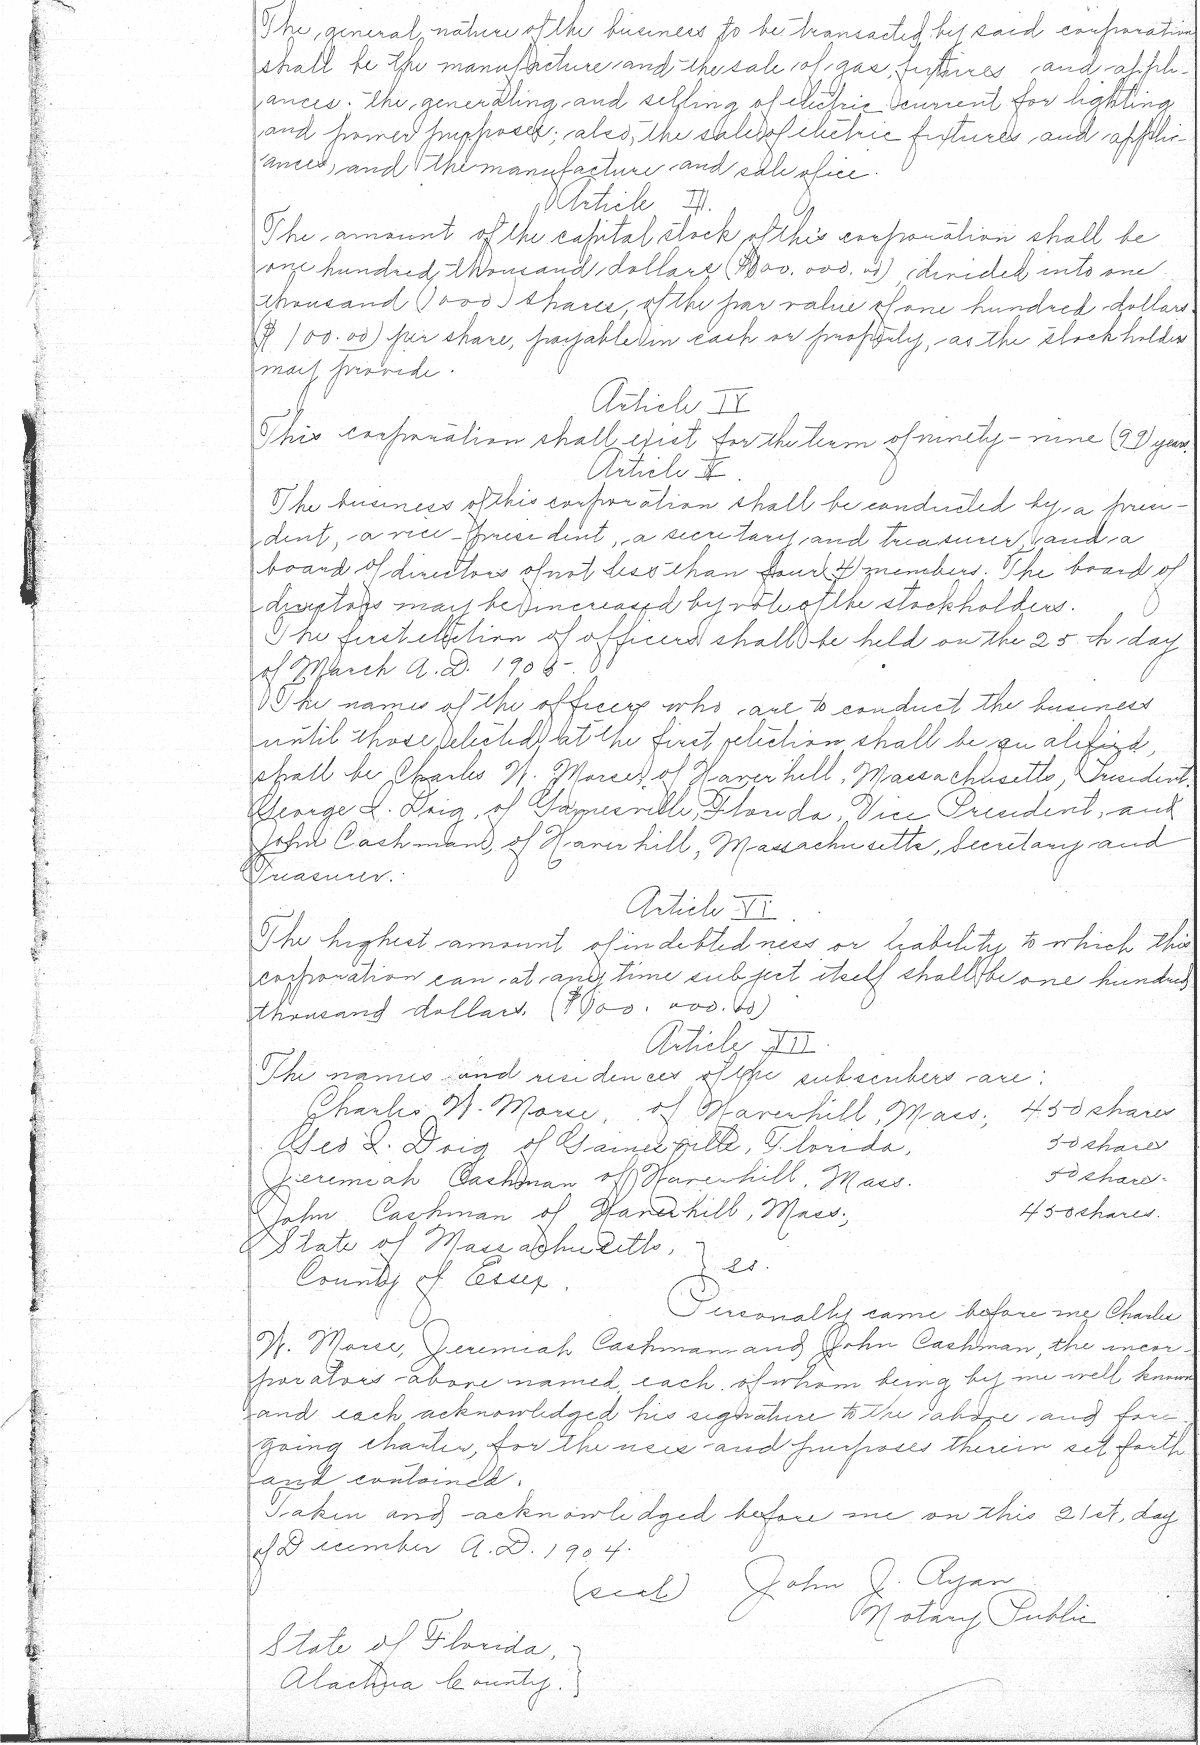 The general nature of the business to be transacted by said corporation
shall be the manufacture and the sale of gas, fixtures and appli-
ances. the generating and selling of electric current for lighting
and power purposes; also, the sale of electric fixtures and applic-
ances, and the manufacture and sale of ice.
Article III.
The amount of the capital stock of this corporation shall be
one hundred thousand dollars ($100.000.00), divided into one
thousand (1000) shares, of the par value of one hundred dollars.
($100.00) per share, payable in cash or property, as the stockholders
may provide.
Article IV
This corporation shall exist for the term of ninety-nine (99) years.
Article V.
The business of this corporation shall be conducted by a presi-
dent, a vice-president, a secretary and treasurer, and a
board of directors of not less than four (4) members. The board of
directors may be increased by vote of the stockholders.
The first election of officers shall be held on the 25th day
of March A.D. 1905-.
The names of the officers who are to conduct the business
until those elected at the first election shall be qualified,
shall be Charles W. Morse, of Haverhill, Massachusetts, President,
George I. Doig, of Gainesville, Florida, Vice President, and
John Cashman, of Haverhill, Massachusetts, Secretary and
Treasurer.
Article VI.
The highest amount of indebtedness or liability to which this
corporation can at any time subject itself shall be one hundred
thousand dollars. ($100.000.00)
Article VII.
The names and residences of the subscribers are:
Charles W. Morse, of Haverhill, Mass; 450 shares
Geo I. Doig of Gainesville, Florida, 50 shares
Jeremiah Cashman of Haverhill, Mass. 50 shares.
John Cashman of Haverhill, Mass; 450 shares.
State of Massachusetts, }
County of Essex. } ss.
Personally came before me Charles
W. Morse, Jeremiah Cashman and John Cashman, the incor-
porators above named, each of whom being by me well known
and each acknowledged his signature to the above and fore-
going charter, for the uses and purposes therein set forth
and contained.
Taken and acknowledged before me on this 21st, day
of December A.D. 1904.
(seal) John J. Ryan
Notary Public
State of Florida, }
Alachua County. }